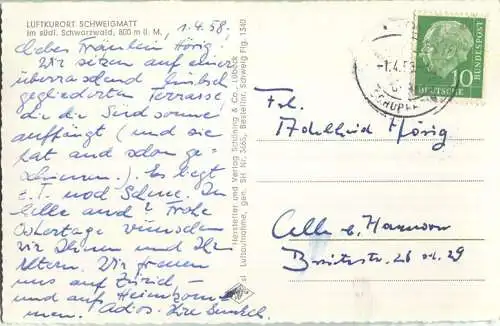 LUFTKURORT SCHWEIGMATT
im südl. Schwarzwald, 800 m ü. M.
1.4.58.
Liebes Fräulein Hörig!
Wir sitzen auf einer
überraschend hübsch
gegliederten Terrasse,
die die Südsonne
auffängt (und sie
hat auch schon ge-
schienen.) Es liegt
z.T. noch Schnee. In
Celle auch? Frohe
Ostertage wünschen
wir Ihnen und Ihren
Eltern. Wir freuen
uns auf Zürich –
und auf Heimkom-
men. Adios. Ihre
Hersteller und Verlag Schöning & Co., Lübeck
Luftaufnahme, gen. SH Nr. 3665, Bestellnr. Schweig Flg. 1340
-1.4.58
10
DEUTSCHE
BUNDESPOST
Frl.
Adelheid Hörig
Celle b. Hannover
Breitestr. 28 od. 29